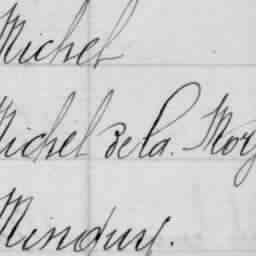 Michel
Michel de la. Roy
Minguy.